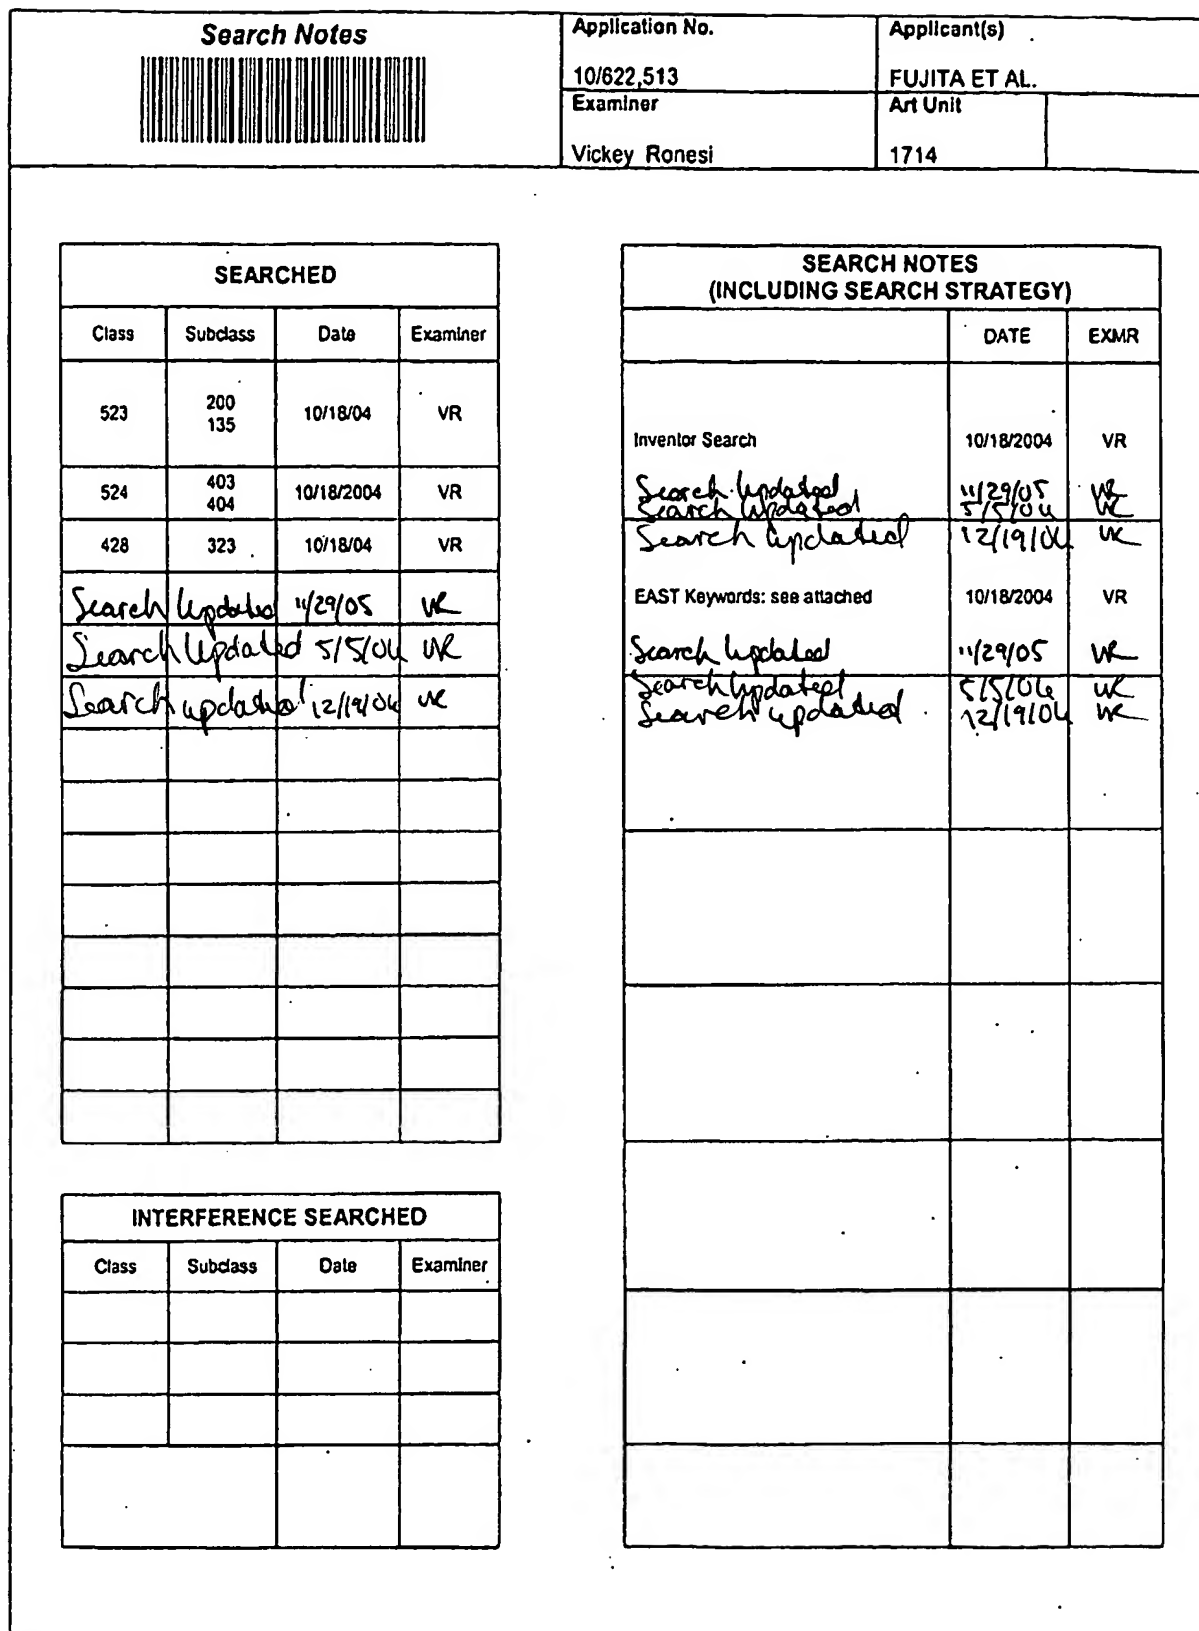 Search Notes
Application No.
10/622,513
Applicant(s)
FUJITA ET AL.
Examiner
Vickey Ronesi
Art Unit
1714
SEARCHED
Class Subclass Date Examiner
523 200 135 10/18/04 VR
524 403 404 10/18/2004 VR
428 323 10/18/04 VR
Search Updated 11/29/05 VR
Search Updated 5/5/06 VR
Search updated 12/19/06 VR
INTERFERENCE SEARCHED
Class Subclass Date Examiner
SEARCH NOTES
(INCLUDING SEARCH STRATEGY)
DATE EXMR
Inventor Search 10/18/2004 VR
Search Updated 11/29/05 VR
Search Updated 5/5/06 VR
Search updated 12/19/06 VR
EAST Keywords: see attached 10/18/2004 VR
Search Updated 11/29/05 VR
Search Updated 5/5/06 VR
Search updated 12/19/06 VR